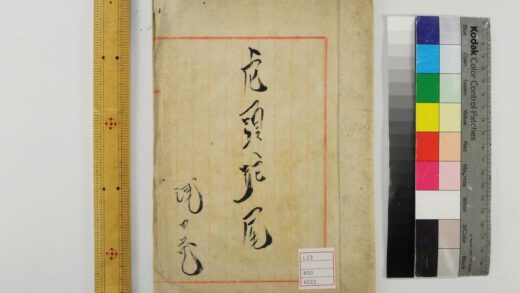 虎頭蛇尾
L23
800
6022
Kodak
Color Control Patches
Blue
Cyan
Green
Yellow
Red
Magenta
White
3/Color
Black